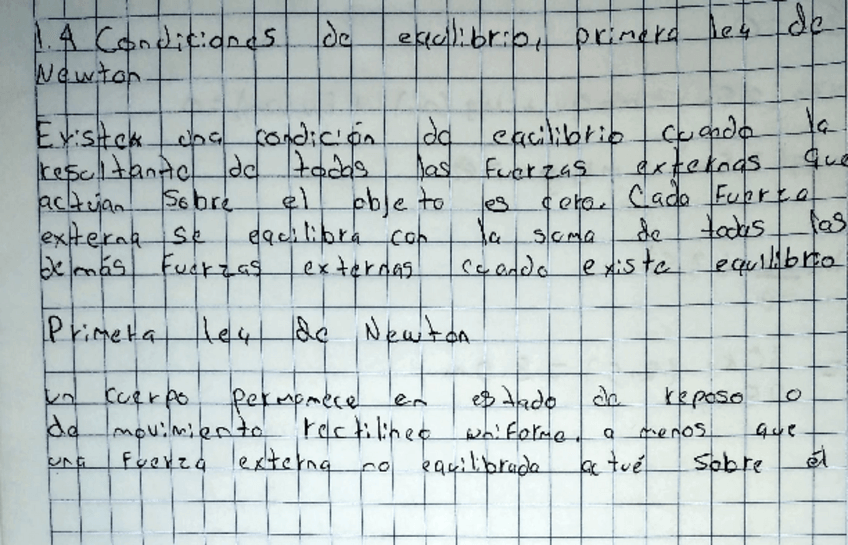 1.4 Condiciones de equilibrio, primera ley de
Newton
Existen una condición de equilibrio cuando la
resultante de todas las fuerzas externas que
actúan sobre el objeto es cero. Cada Fuerza
externa se equilibra con la suma de todas las
demás fuerzas externas cuando existe equilibrio
Primera ley de Newton
un cuerpo permamece en estado de reposo o
de movimiento rectilineo uniforme, a menos que
una fuerza externa no equilibrada actué sobre él